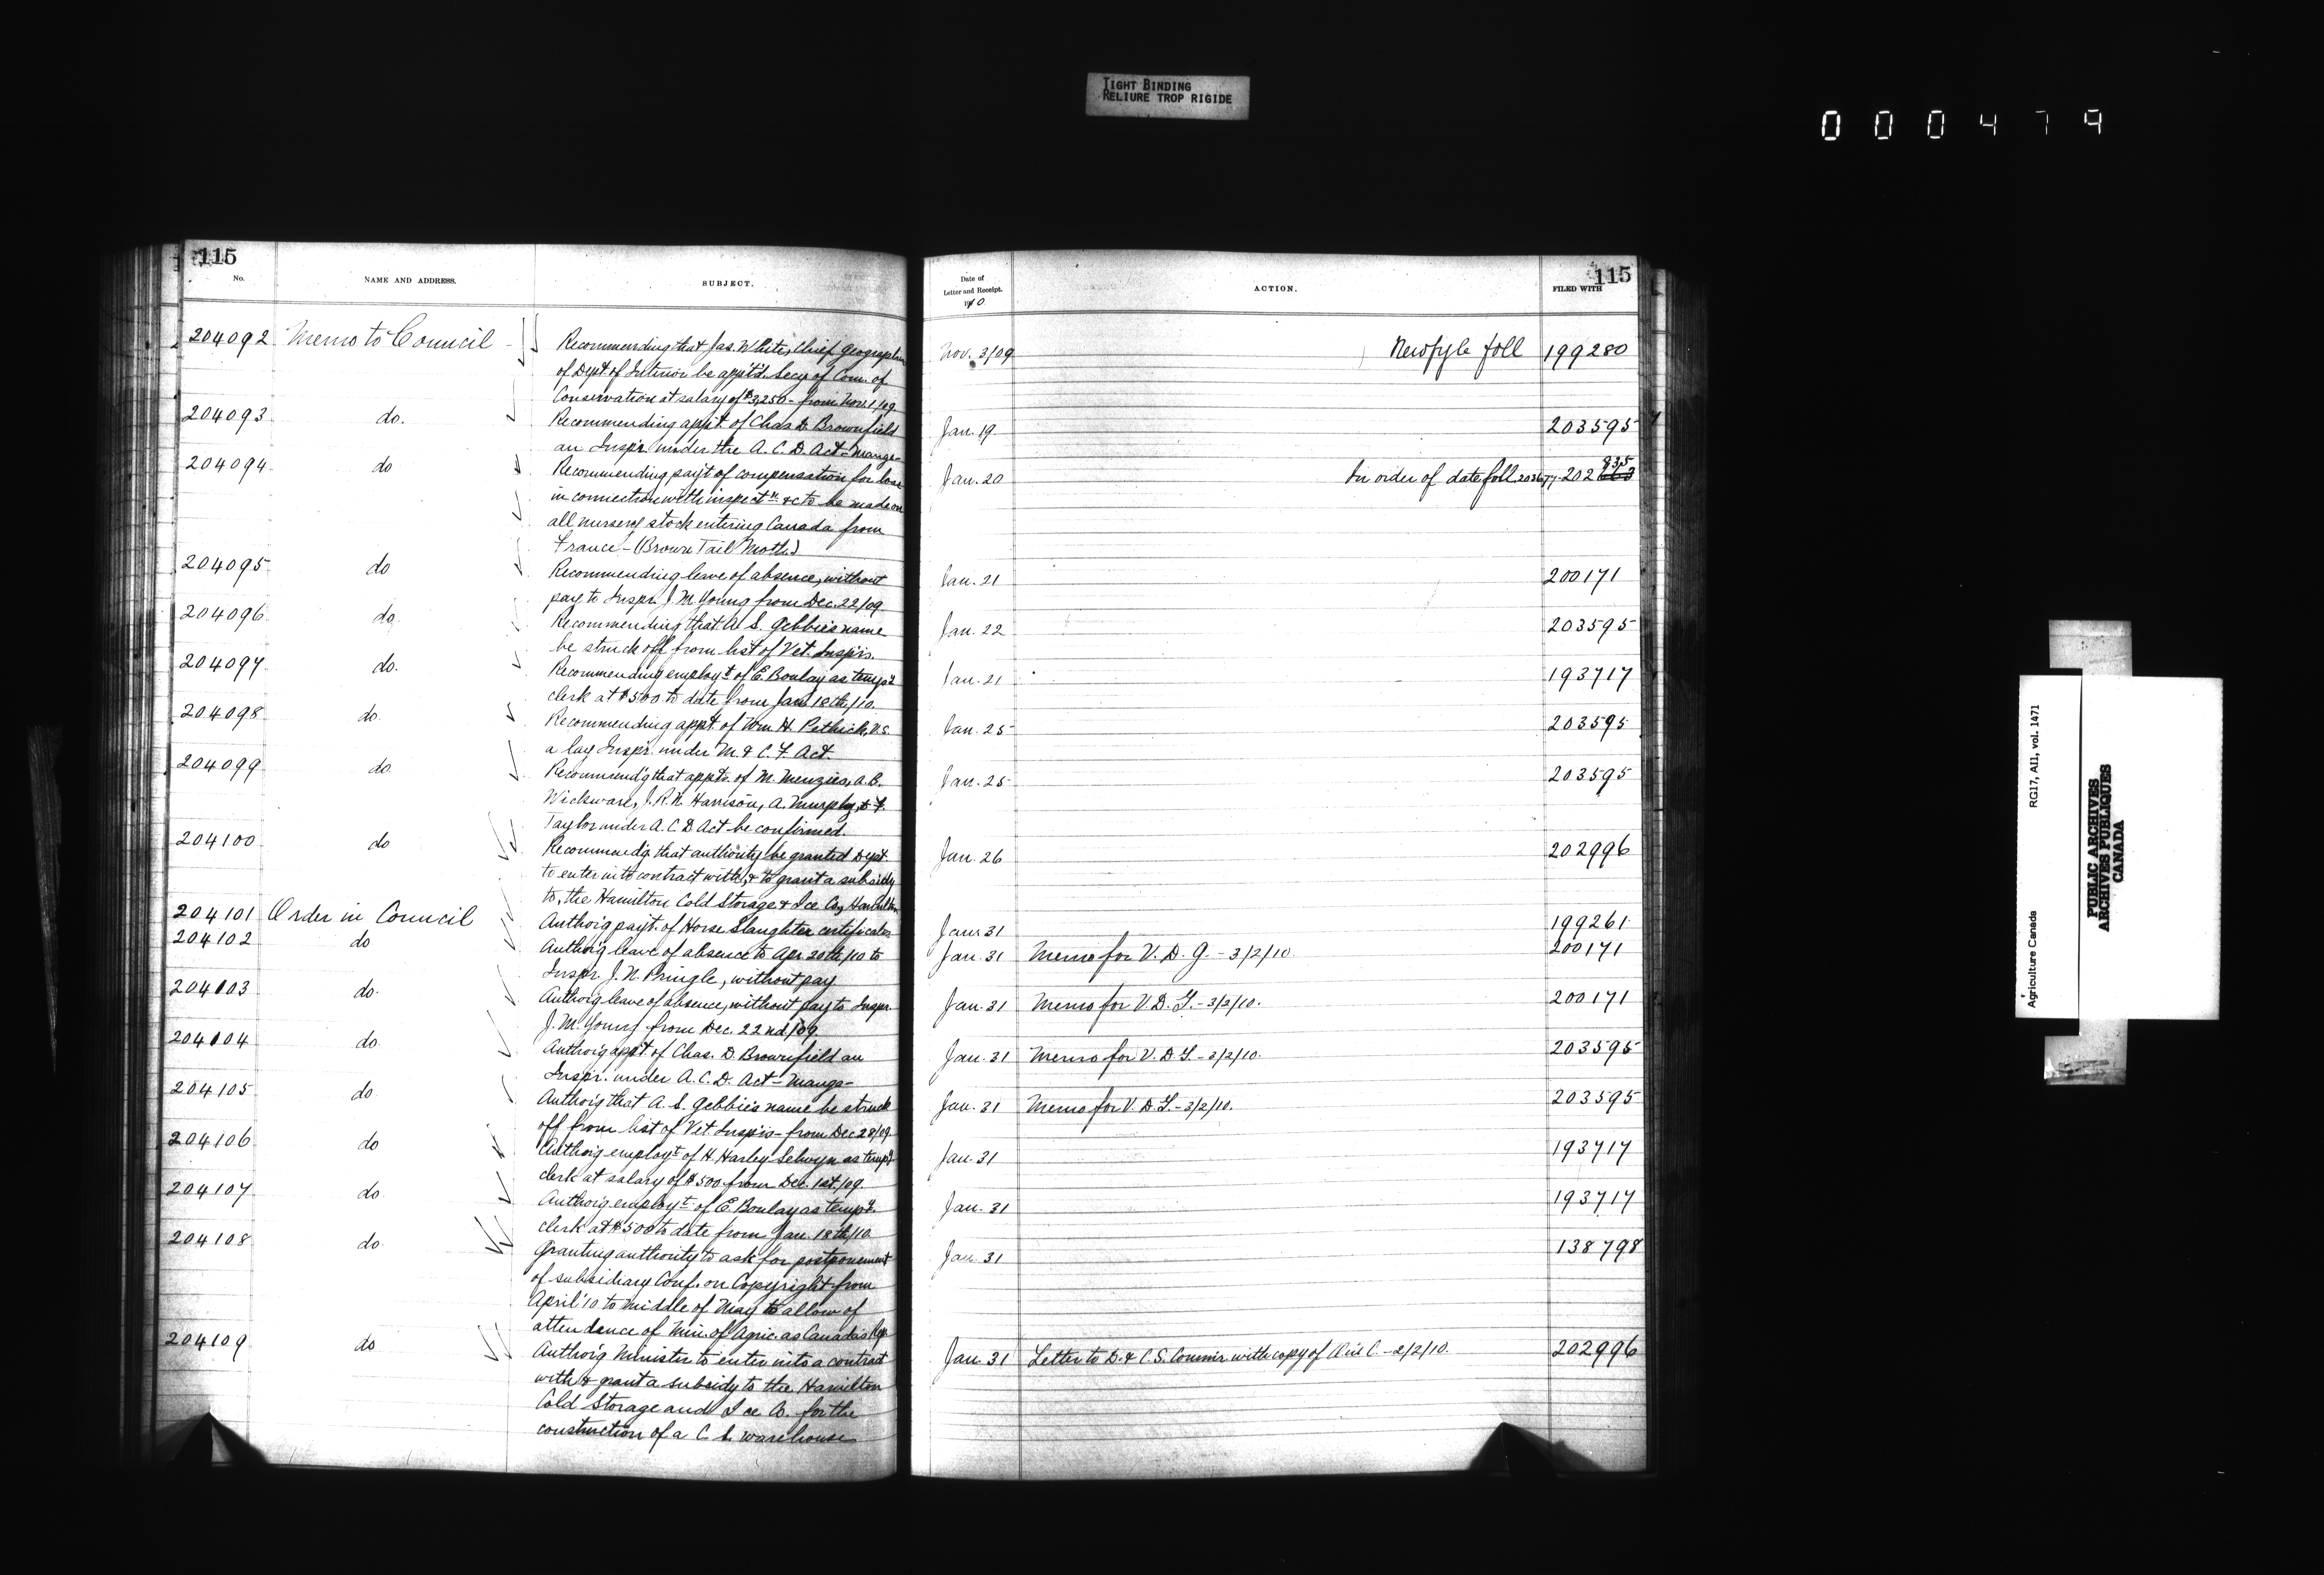 TIGHT BINDING
RELIURE TROP RIGIDE
000479
115
No.
NAME AND ADDRESS.
SUBJECT.
204092 Memo to Council - Recommending that Jas. White, Chief Geographer
of Dept. of Interior be appt'd. Secy of Com. of
Conservation at salary of $3,250- from Nov. 1/09
204093 do. Recommending app't of Chas. D. Brownfield
an Inspr. under the A. C. D. Act - Mange-
204094 do Recommending pay't of compensation for loss
in connection with inspectn. &c to be made on
all nursery stock entering Canada from
France - (Brown Tail Moth)
204095 do Recommending leave of absence, without
pay to Inspr. J. M. Young from Dec. 22/09
204096 do. Recommending that A. S. Gebbie's name
be struck off from list of Vet. Insprs.
204097 do. Recommending employt. of E. Boulay as temp'y
clerk at $500 to date from Jan. 18th/10.
204098 do. Recommending app't of Wm. H. Pethick, V.S.
a lay Inspr. under M. & C. F. Act.
204099 do. Recommend'g that appts. of M. Menzies, A. B.
Wickware, J. R. N. Harrison, A. Murphy, & F.
Taylor under A. C. D Act be confirmed.
204100 do Recommend'g that authority be granted Dept.
to enter into contract with, & to grant a subsidy
to, the Hamilton Cold Storage & Ice Co, Hamilton
204101 Order in Council Author'g pay't. of Horse Slaughter certificates
204102 do Author'g leave of absence to Apr. 20th/10 to
Inspr. J. N. Pringle, without pay
204103 do. Author'g leave of absence, without pay to Inspr.
J. M. Young from Dec. 22nd/09
204104 do. Author'g app't of Chas. D. Brownfield an
Inspr. under A. C. D. Act - Mange-
204105 do Author'g that A. S. Gebbie's name be struck
off from list of Vet. Insprs - from Dec 28/09
204106 do Author'g employt. of H. Harley Selwyn as temp'y
clerk at salary of $500 from Dec. 1st/09
204107 do. Author'g employt. of E. Boulay as temp'y
clerk at $500 to date from Jan. 18th/10
204108 do. Granting authority to ask for postponement
of subsidiary Conf. on Copyright from
April '10 to middle of May to allow of
attendance of Min. of Agric. as Canada's Rep.
204109 do Author'g Minister to enter into a contract
with & grant a subsidy to the Hamilton
Cold Storage and Ice Co. for the
construction of a C. S. warehouse
115
Date of
Letter and Receipt.
1910.
ACTION.
FILED WITH
Nov. 3/09 New fyle foll 199280
Jan. 19. 203595
Jan. 20 In order of date foll 202 835
Jan. 21 200171
Jan. 22 203595
Jan. 21 193717
Jan. 25 203595
Jan. 25 203595
Jan. 26 202996
Jan. 31 199261
Jan. 31 Memo for V. D. G. - 3/2/10. 200171
Jan. 31 Memo for V. D. G. - 3/2/10. 200171
Jan. 31 Memo for V. D. G. - 3/2/10. 203595
Jan. 31 Memo for V. D. G. - 3/2/10. 203595
Jan. 31 193717
Jan. 31 193717
Jan. 31 138798
Jan. 31 Letter to D. & C. S. Commr. with copy of O in C. - 2/2/10. 202996
Agriculture Canada RG17, A11, vol. 1471
PUBLIC ARCHIVES
ARCHIVES PUBLIQUES
CANADA